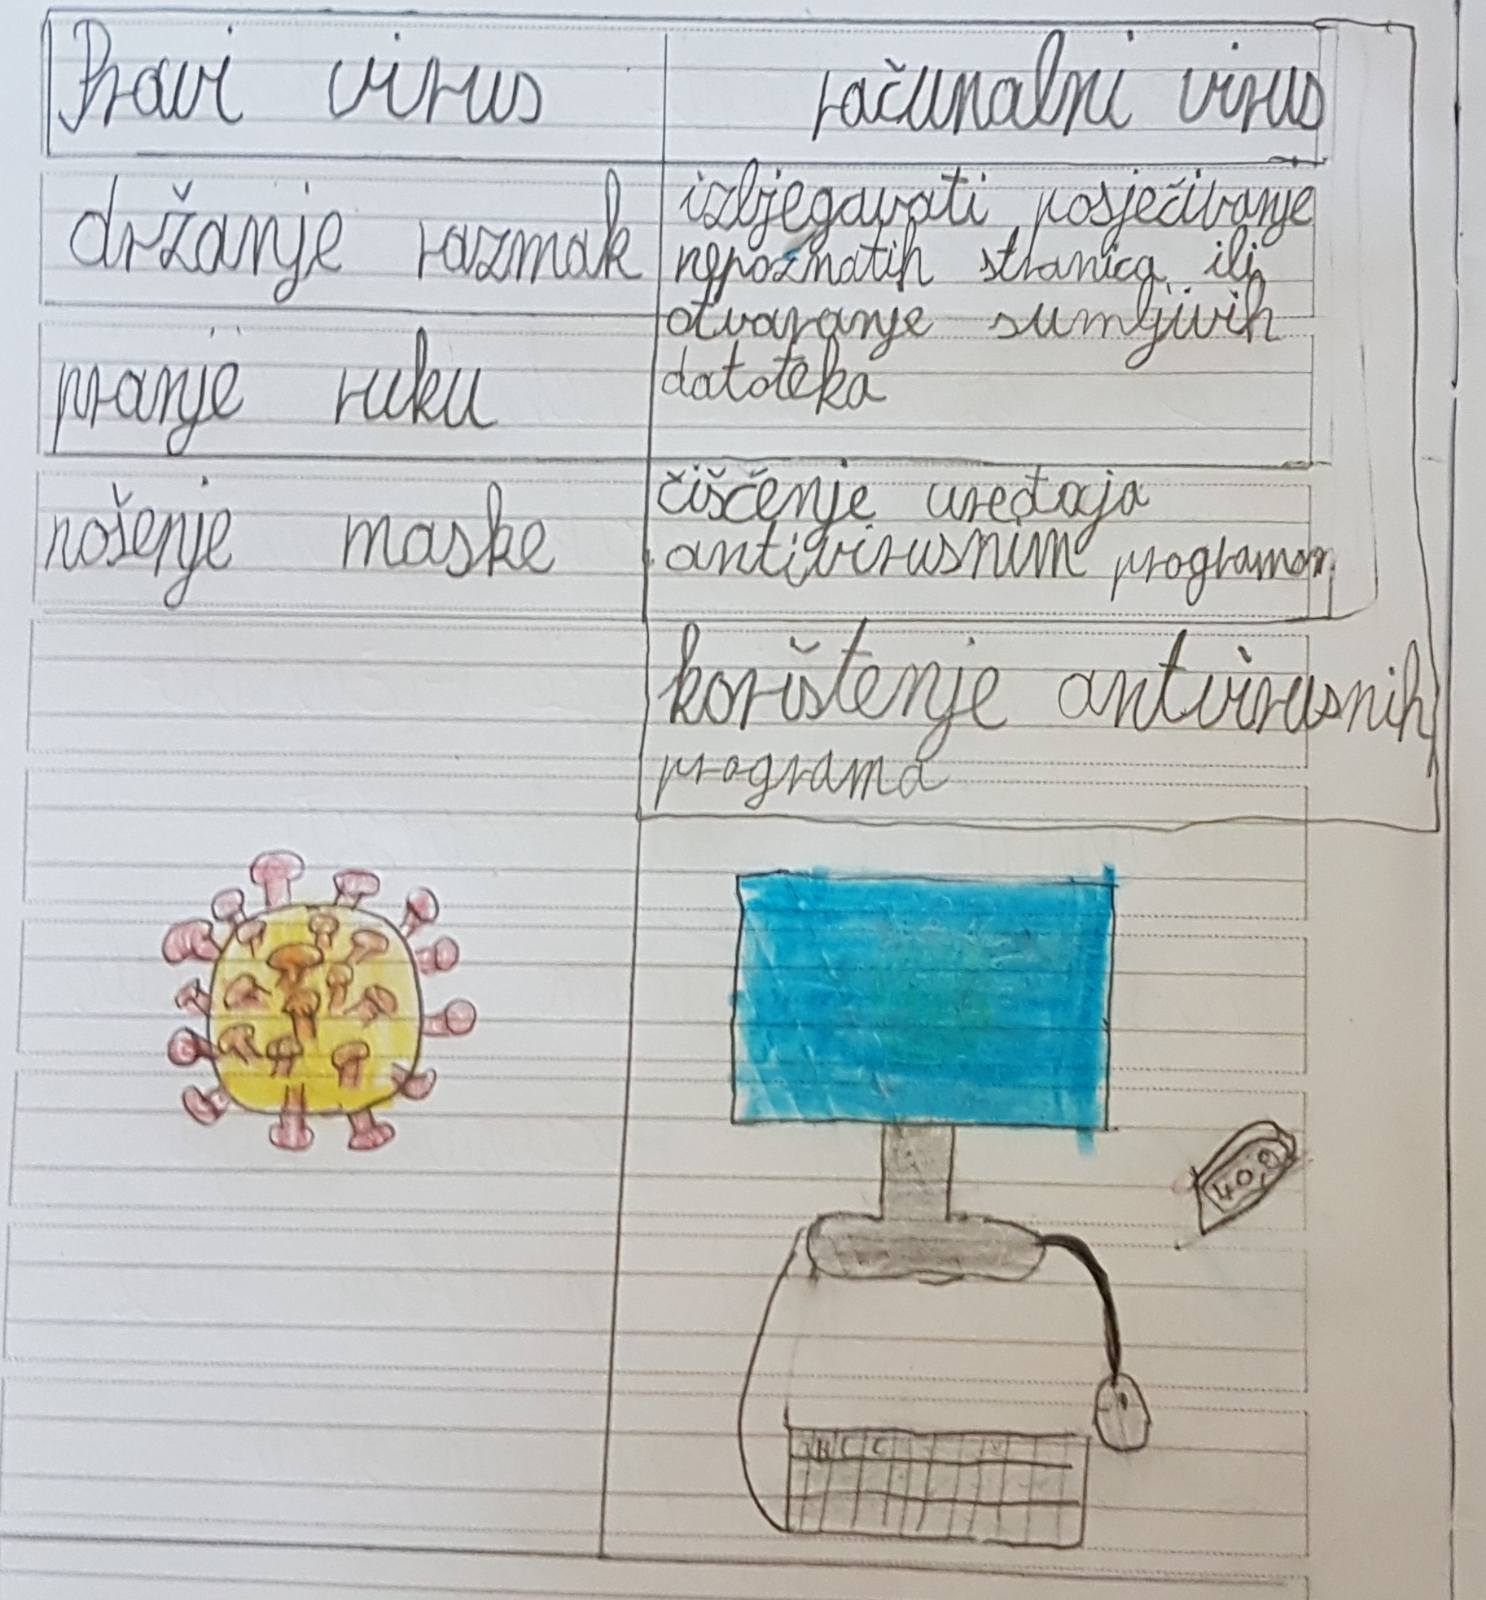 Pravi virus
računalni virus
držanje razmak
izbjegavati posječivanje
nepoznatih stranica ili
otvaranje sumljivih
datoteka
pranje ruku
nošenje maske
čiščenje uređaja
antivirusnim programom
korištenje antvirusnih
programa
40,0